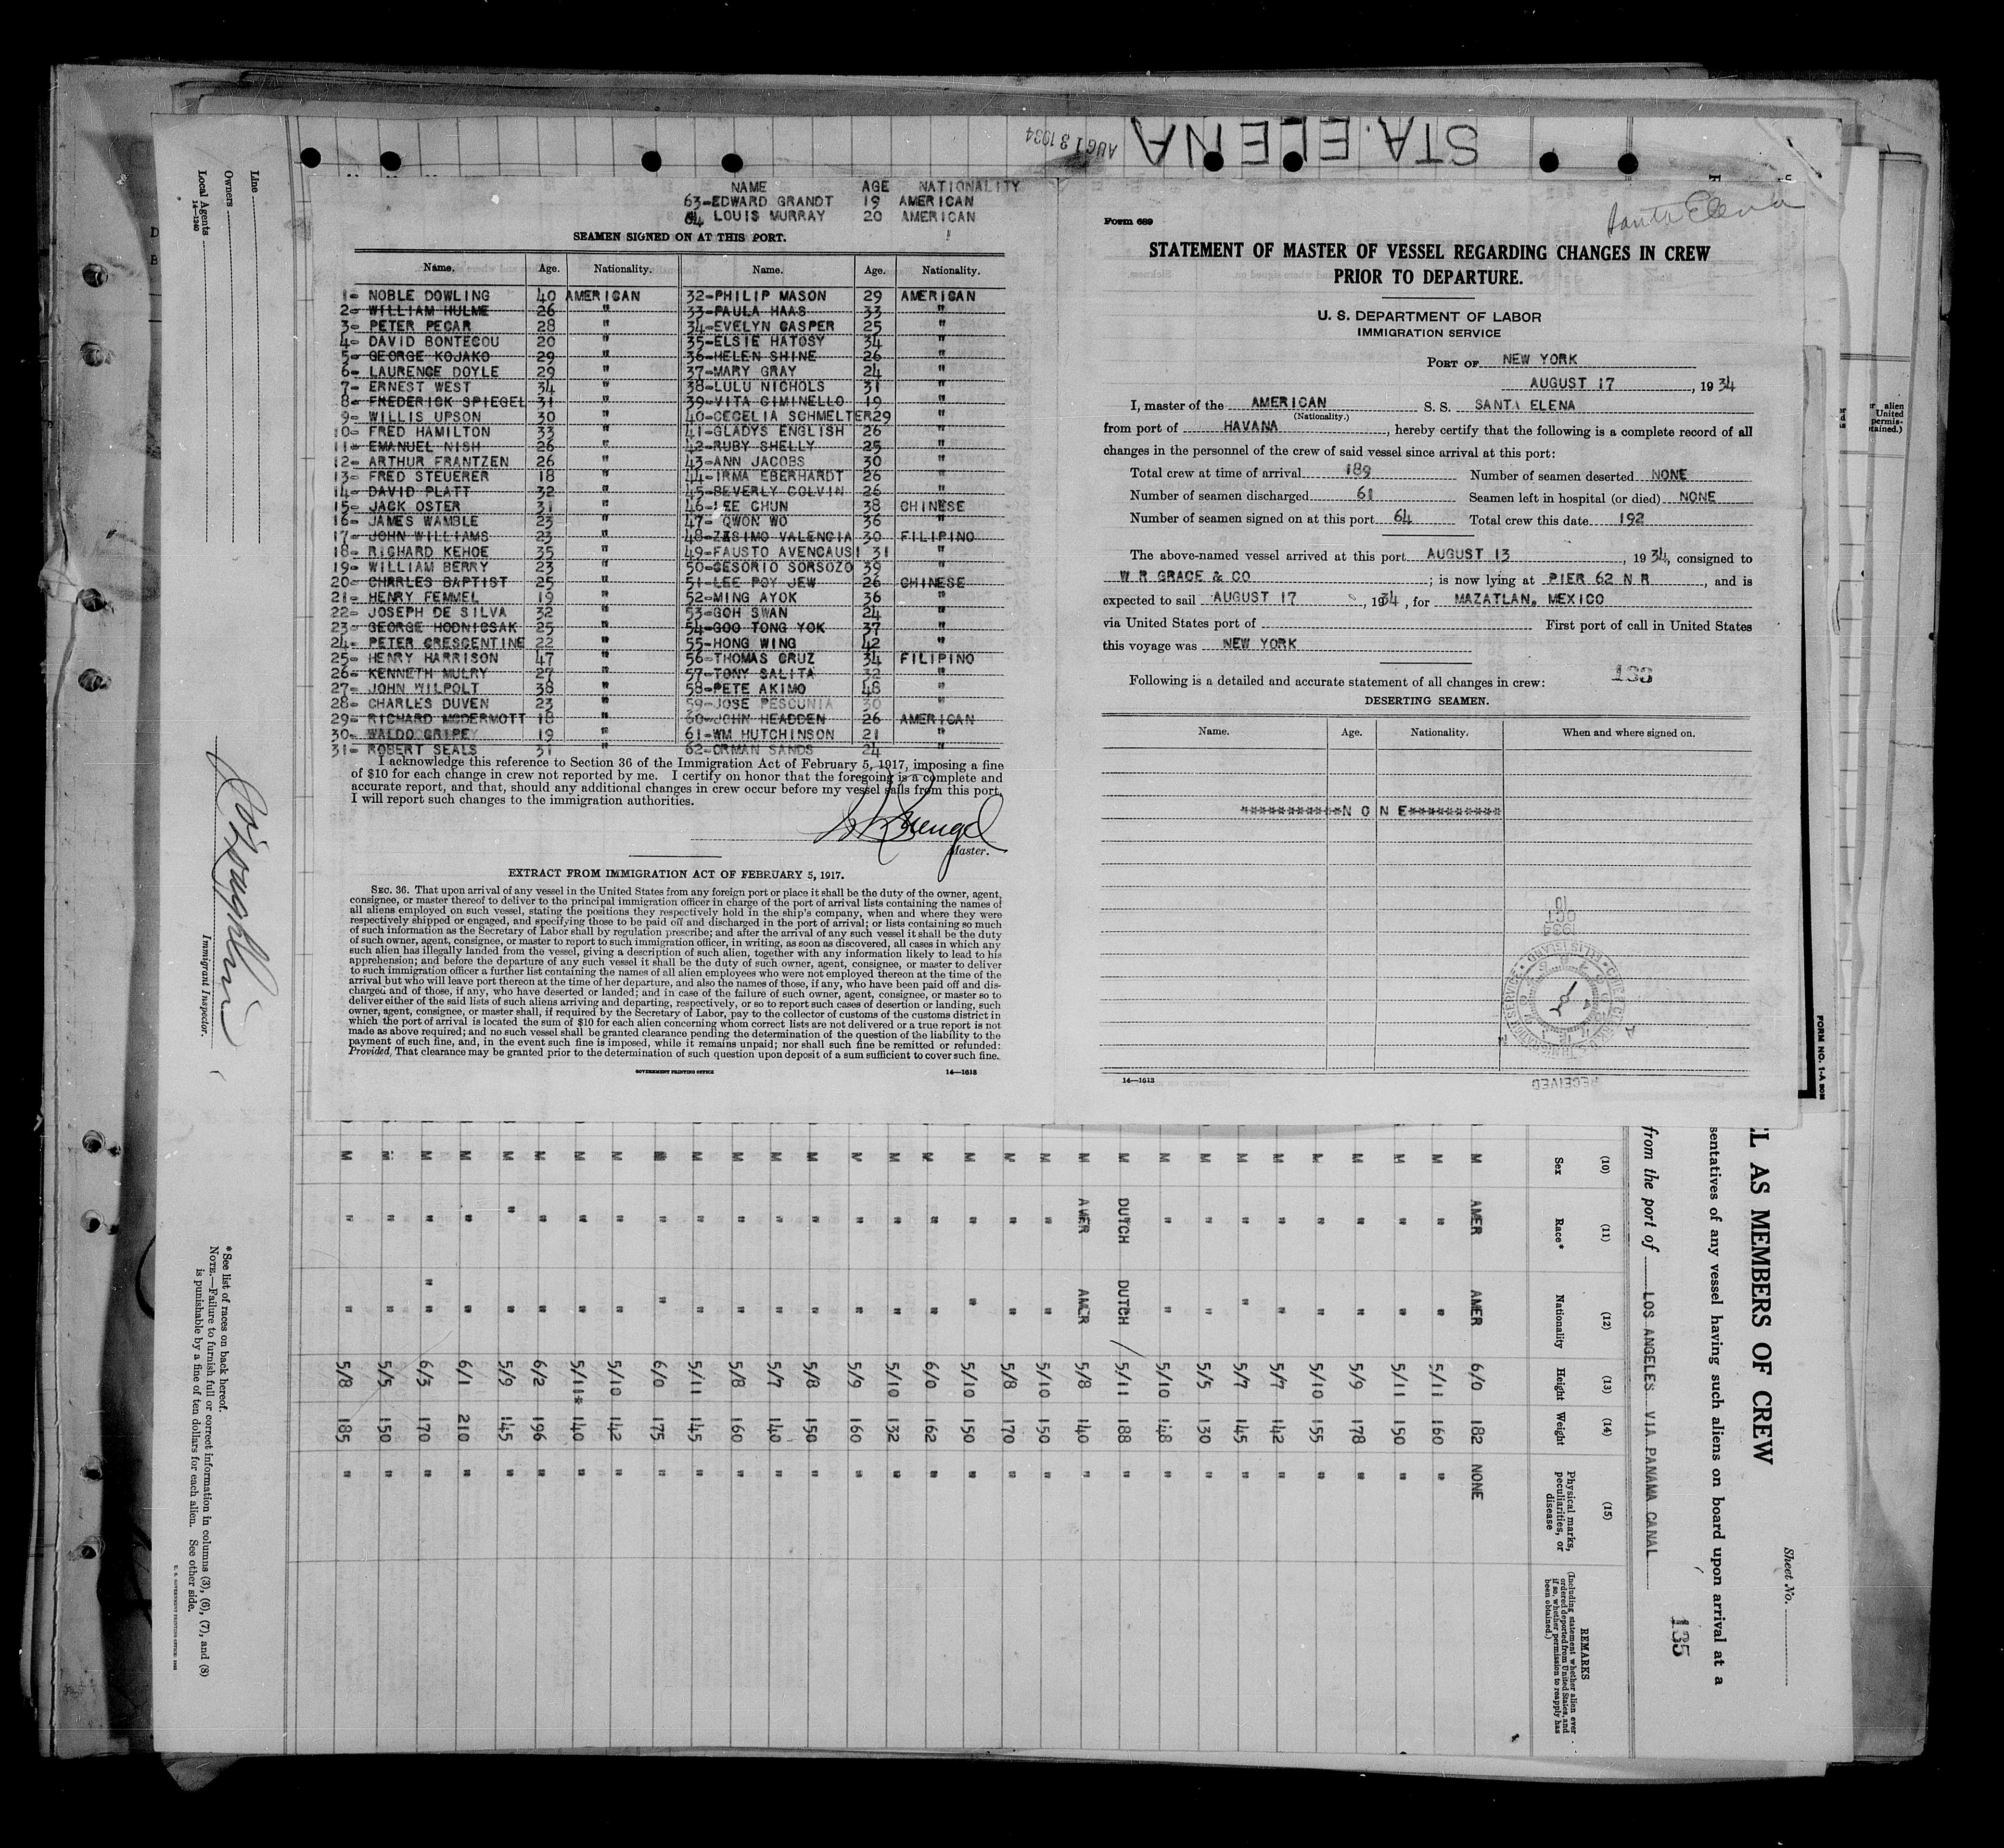 STA. ELENA
AUG 13 1934
NAME AGE NATIONALITY
63-EDWARD GRANDT 19 AMERICAN
64 LOUIS MURRAY 20 AMERICAN
SEAMEN SIGNED ON AT THIS PORT.
Name. Age. Nationality. Name. Age. Nationality.
1- NOBLE DOWLING 40 AMERICAN 32-PHILIP MASON 29 AMERICAN
2- WILLIAM HULME 26 " 33-PAULA HAAS 33 "
3- PETER PECAR 28 " 34-EVELYN CASPER 25 "
4- DAVID BONTECOU 20 " 35-ELSIE HATOSY 34 "
5- GEORGE KOJAKO 29 " 36-HELEN SHINE 26 "
6- LAURENCE DOYLE 29 " 37-MARY GRAY 24 "
7- ERNEST WEST 34 " 38-LULU NICHOLS 31 "
8- FREDERICK SPIEGEL 31 " 39-VITA CIMINELLO 19 "
9- WILLIS UPSON 30 " 40-CECELIA SCHMELTER29 "
10- FRED HAMILTON 33 " 41-GLADYS ENGLISH 26 "
11- EMANUEL NISH 26 " 42-RUBY SHELLY 25 "
12- ARTHUR FRANTZEN 26 " 43-ANN JACOBS 30 "
13- FRED STEUERER 18 " 44-IRMA EBERHARDT 26 "
14- DAVID PLATT 32 " 45-BEVERLY COLVIN 26 "
15- JACK OSTER 31 " 46-LEE CHUN 38 CHINESE
16- JAMES WAMBLE 23 " 47- QWON WO 36 "
17- JOHN WILLIAMS 23 " 48-ZISIMO VALENCIA 30 FILIPINO
18- RICHARD KEHOE 35 " 49-FAUSTO AVENCAUSI 31 "
19- WILLIAM BERRY 23 " 50-CESORIO SORSOZO 39 "
20- CHARLES BAPTIST 25 " 51-LEE POY JEW 26 CHINESE
21- HENRY FEMMEL 19 " 52-MING AYOK 36 "
22- JOSEPH DE SILVA 32 " 53-GOH SWAN 24 "
23- GEORGE HODNICSAK 25 " 54-GOO TONG YOK 37 "
24- PETER CRESCENTINE 22 " 55-HONG WING 42 "
25- HENRY HARRISON 47 " 56-THOMAS CRUZ 34 FILIPINO
26- KENNETH MULRY 27 " 57-TONY SALITA 32 "
27- JOHN WILPOLT 38 " 58-PETE AKIMO 48 "
28- CHARLES DUVEN 23 " 59-JOSE PESCUNIA 30 "
29- RICHARD MCDERMOTT 18 " 60-JOHN HEADDEN 26 AMERICAN
30- WALDO GRIPEY 19 " 61-WM HUTCHINSON 21 "
31- ROBERT SEALS 31 " 62-ORMAN SANDS 24 "
I acknowledge this reference to Section 36 of the Immigration Act of February 5, 1917, imposing a fine
of $10 for each change in crew not reported by me. I certify on honor that the foregoing is a complete and
accurate report, and that, should any additional changes in crew occur before my vessel sails from this port,
I will report such changes to the immigration authorities.
Master.
EXTRACT FROM IMMIGRATION ACT OF FEBRUARY 5, 1917.
SEC. 36. That upon arrival of any vessel in the United States from any foreign port or place it shall be the duty of the owner, agent,
consignee, or master thereof to deliver to the principal immigration officer in charge of the port of arrival lists containing the names of
all aliens employed on such vessel, stating the positions they respectively hold in the ship's company, when and where they were
respectively shipped or engaged, and specifying those to be paid off and discharged in the port of arrival; or lists containing so much
of such information as the Secretary of Labor shall by regulation prescribe; and after the arrival of any such vessel it shall be the duty
of such owner, agent, consignee, or master to report to such immigration officer, in writing, as soon as discovered, all cases in which any
such alien has illegally landed from the vessel, giving a description of such alien, together with any information likely to lead to his
apprehension; and before the departure of any such vessel it shall be the duty of such owner, agent, consignee, or master to deliver
to such immigration officer a further list containing the names of all alien employees who were not employed thereon at the time of the
arrival but who will leave port thereon at the time of her departure, and also the names of those, if any, who have been paid off and dis-
charged and of those, if any, who have deserted or landed; and in case of the failure of such owner, agent, consignee, or master so to
deliver either of the said lists of such aliens arriving and departing, respectively, or so to report such cases of desertion or landing, such
owner, agent, consignee, or master shall, if required by the Secretary of Labor, pay to the collector of customs of the customs district in
which the port of arrival is located the sum of $10 for each alien concerning whom correct lists are not delivered or a true report is not
made as above required; and no such vessel shall be granted clearance pending the determination of the question of the liability to the
payment of such fine, and, in the event such fine is imposed, while it remains unpaid; nor shall such fine be remitted or refunded:
Provided, That clearance may be granted prior to the determination of such question upon deposit of a sum sufficient to cover such fine.
GOVERNMENT PRINTING OFFICE 14—1613
Santa Elena
Form 689
STATEMENT OF MASTER OF VESSEL REGARDING CHANGES IN CREW
PRIOR TO DEPARTURE.
U. S. DEPARTMENT OF LABOR
IMMIGRATION SERVICE
PORT OF NEW YORK
AUGUST 17, 1934
I, master of the AMERICAN S. S. SANTA ELENA
(Nationality.)
from port of HAVANA, hereby certify that the following is a complete record of all
changes in the personnel of the crew of said vessel since arrival at this port:
Total crew at time of arrival 189 Number of seamen deserted NONE
Number of seamen discharged 61 Seamen left in hospital (or died) NONE
Number of seamen signed on at this port 64 Total crew this date 192
The above-named vessel arrived at this port AUGUST 13, 1934, consigned to
W R GRACE & CO; is now lying at PIER 62 N R, and is
expected to sail AUGUST 17, 1934, for MAZATLAN, MEXICO
via United States port of First port of call in United States
this voyage was NEW YORK
133
Following is a detailed and accurate statement of all changes in crew:
DESERTING SEAMEN.
Name. Age. Nationality. When and where signed on.
**********N O N E**********
1934
OCT
10
RECEIVED
14—1613
FORM NO. 1-A
Line
Owners
Local Agents
14—1240
Immigrant Inspector.
* See list of races on back hereof.
NOTE.—Failure to furnish full or correct information in columns (3), (6), (7), and (8)
is punishable by a fine of ten dollars for each alien. See other side.
Sheet No.
L AS MEMBERS OF CREW
sentatives of any vessel having such aliens on board upon arrival at a
from the port of LOS ANGELES VIA PANAMA CANAL
135
(10) (11) (12) (13) (14) (15)
Sex Race* Nationality Height Weight Physical marks, peculiarities, or disease
REMARKS
(Including statement whether alien ever ordered deported from United States, and if so, whether permission to reapply has been obtained.)
M AMER AMER 6/0 182 NONE
M " " 5/11 160 "
M " " 5/11 150 "
M " " 5/9 178 "
M " " 5/10 155 "
M " " 5/7 142 "
M " " 5/7 145 "
M " " 5/5 130 "
M " " 5/10 148 "
M DUTCH DUTCH 5/11 188 "
M AMER AMER 5/8 140 "
M " " 5/10 150 "
M " " 5/8 170 "
M " " 5/10 150 "
M " " 6/0 162 "
M " " 5/10 132 "
M " " 5/9 160 "
M " " 5/8 150 "
M " " 5/7 140 "
M " " 5/8 160 "
M " " 5/11 145 "
M " " 6/0 175 "
M " " 5/10 142 "
M " " 5/11½ 140 "
M " " 6/2 196 "
M " " 5/9 145 "
M " " 6/1 210 "
M " " 6/3 170 "
M " " 5/5 150 "
M " " 5/8 185 "